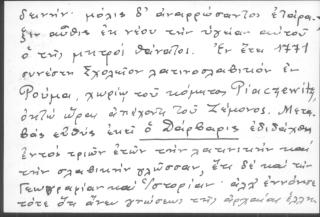 δεινήν· μόλις δ' ἀναρρώσαντος ἐτάρα-
ξεν αὖθις ἐκ νέου τὴν ὑγείαν αὐτοῦ
ὁ τῆς μητρὸς θάνατος. Ἐν ἔτει 1771
συνέστη Σχολεῖον λατινοσλαβικὸν ἐν
Ρούμᾳ, χωρίῳ τοῦ κόμητος Piaczewitz,
ὀκτὼ ὥρας ἀπέχοντι τοῦ Ζέμονος. Μετα-
βὰς εὐθὺς ἐκεῖ ὁ Δάρβαρις ἐδιδάχθη
ἐντὸς τριῶν ἐτῶν τὴν λατινικὴν καὶ
τὴν σλαβικὴν γλῶσσαν, ἔτι δὲ καὶ τὴν
Γεωγραφίαν καὶ Ἱστορίαν· ἀλλ' ἐνόησε
τότε ὅτι ἄνευ γνώσεως τῆς ἀρχαίας ἑλλη